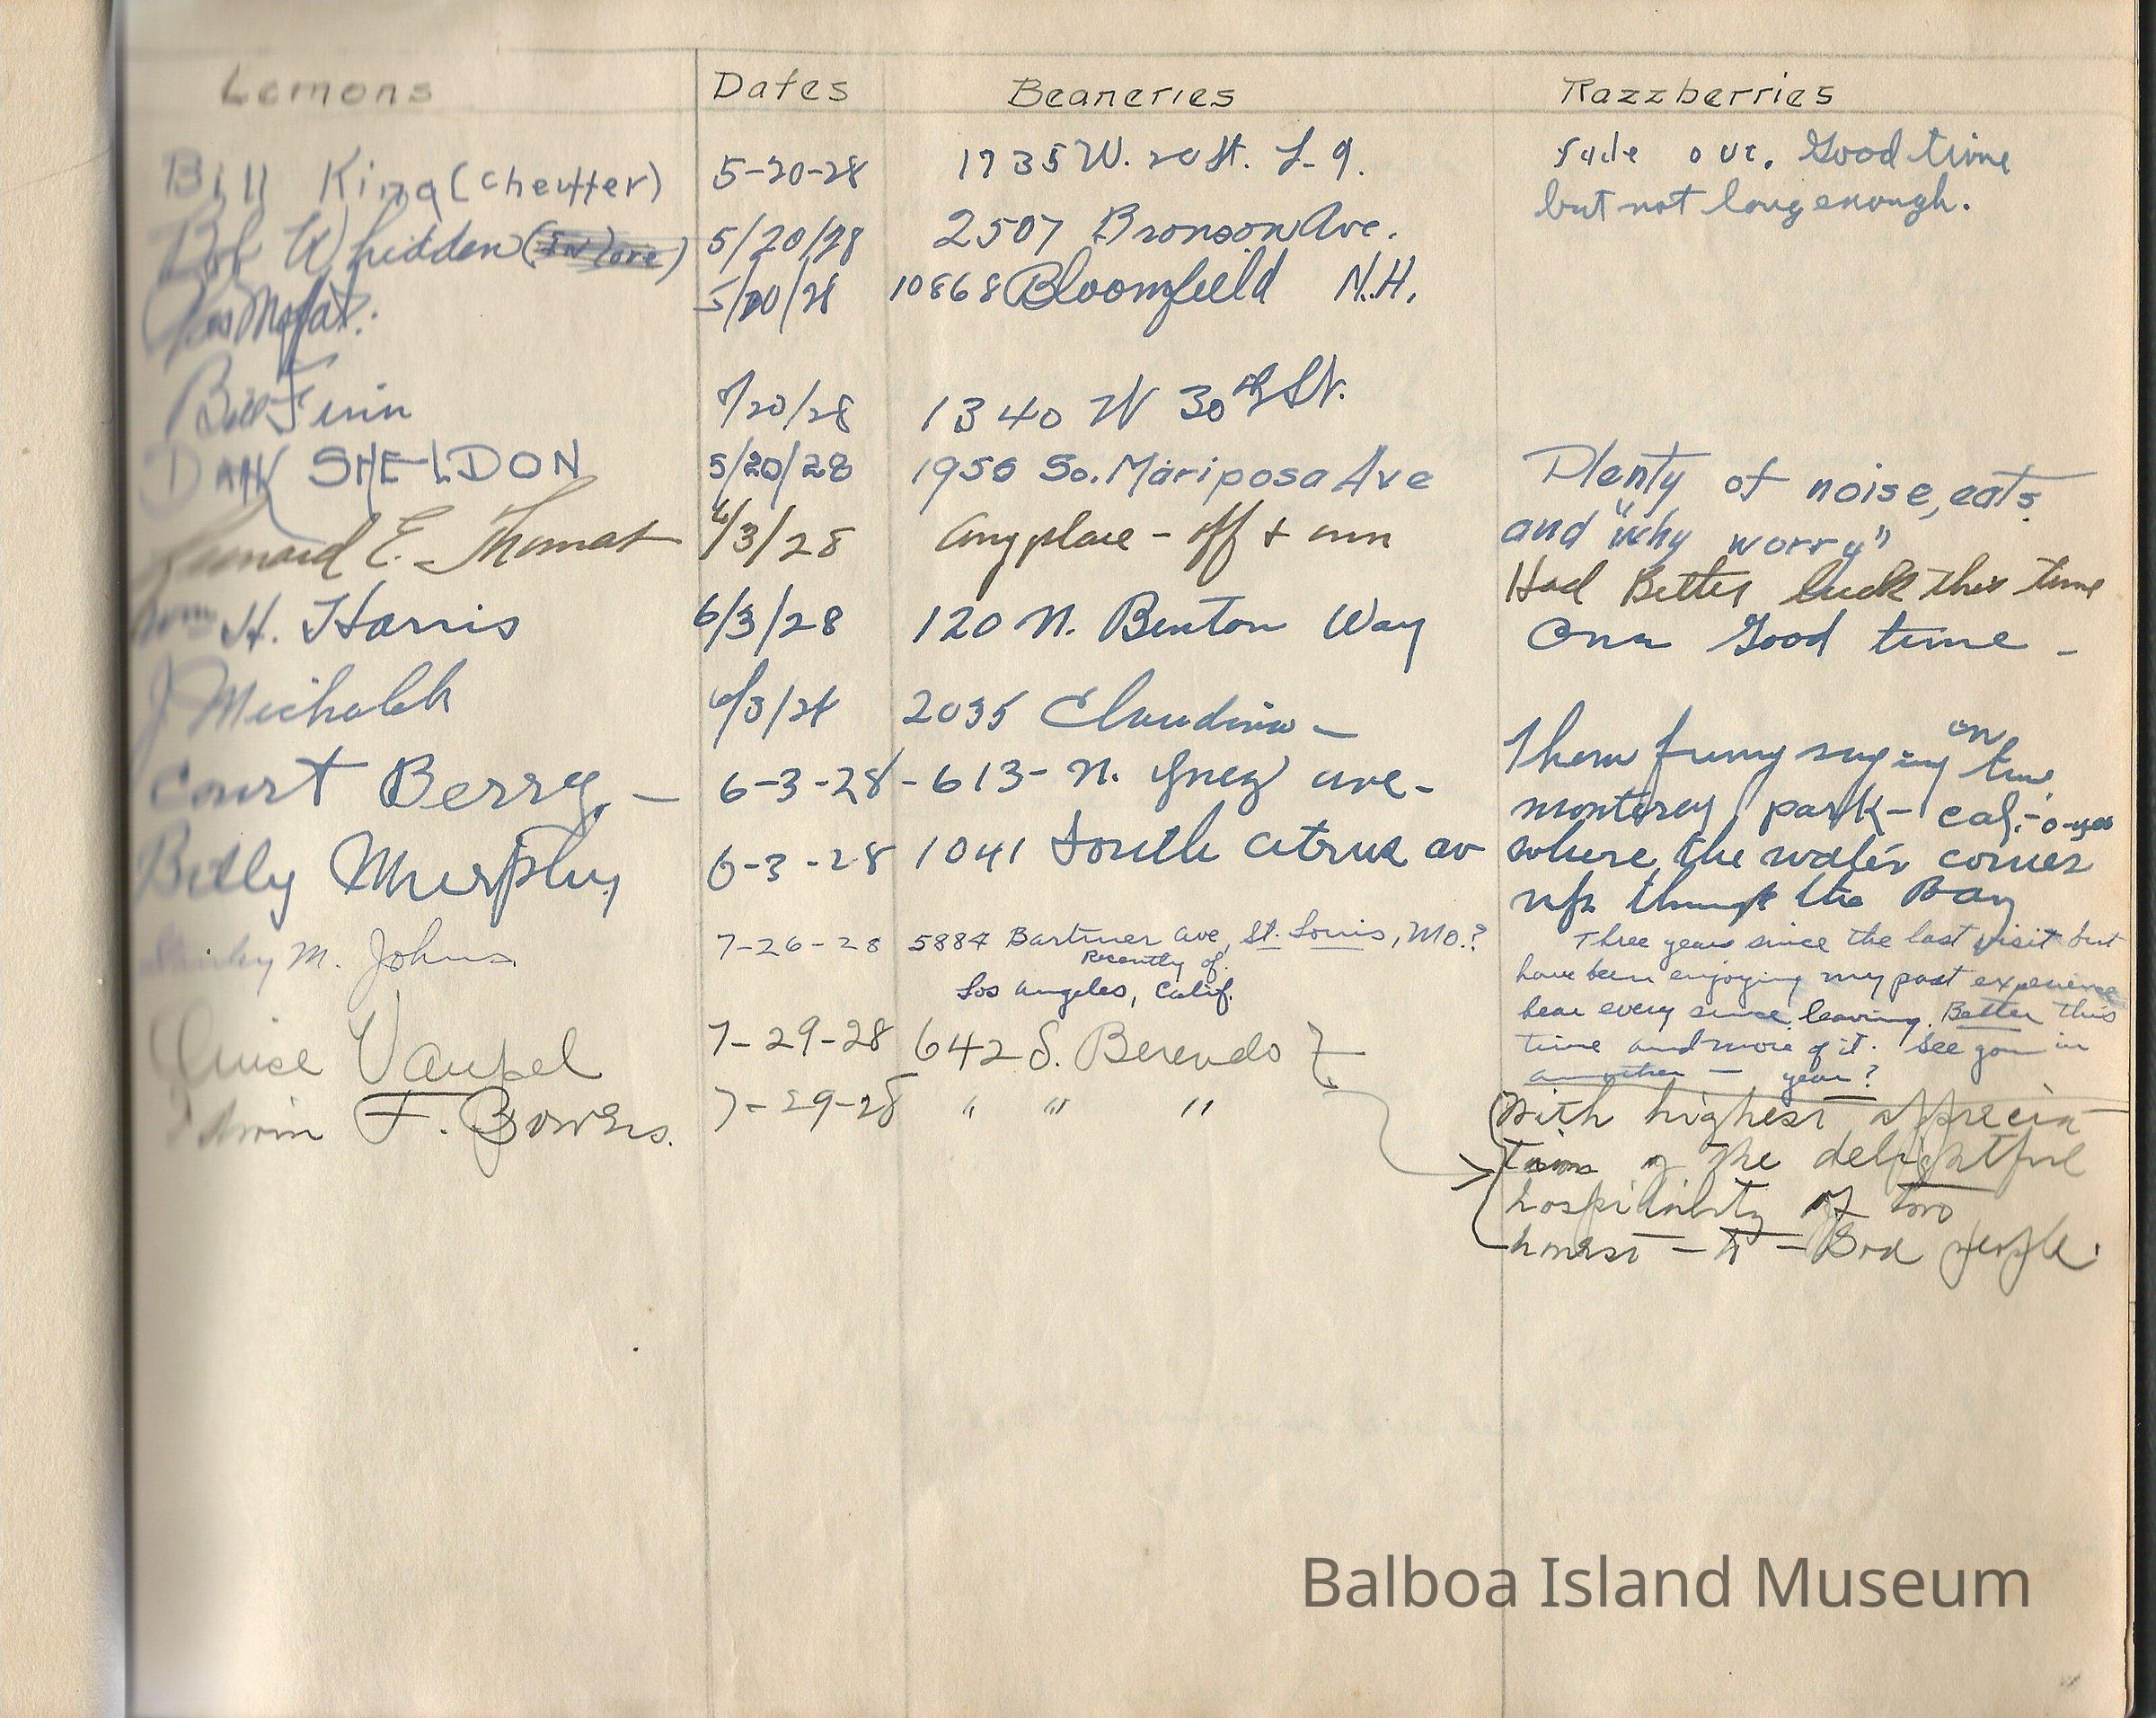 Lemons Dates Beaneries Razzberries
Bill King (cheutter) 5-20-28 1735 W. 20 St. L-9. out. Good time
but not long enough.
Bob Whidden (In love) 5/20/28 2507 Bronson Ave.
5/20/28 10868 Bloomfield N.H.
Bill Finn /20/28 1340 W 30th St.
SHELDON 5/20/28 1956 So. Mariposa Ave Plenty of noise, eats
and "why worry"
Leonard E. Thomas 6/3/28 Any place - off + run Had Better luck this time
H. Harris 6/3/28 120 N. Benton Way One Good time -
J 6/3/28 2035
Them funny on time
Court Berry. - 6-3-28 - 613 - N. Ynez ave. -
monterey park - cal. -
Billy Murphy 6-3-28 1041 South citrus av where the water comes
up through the Bay
M. Johns 7-26-28 5884 Bartmer Ave, St. Louis, Mo.? Three years since the last visit but
Recently of have been enjoying my past experience
Los Angeles, Calif. every since leaving. Better this
time and more of it. See you in
another — year?
Vaupel 7-29-28 642 S. Berendo
Edwin F. Bowers. 7-29-28 " " " With highest apprecia-
tion of the delightful
hospitality of two
honest - to - God people.
Balboa Island Museum